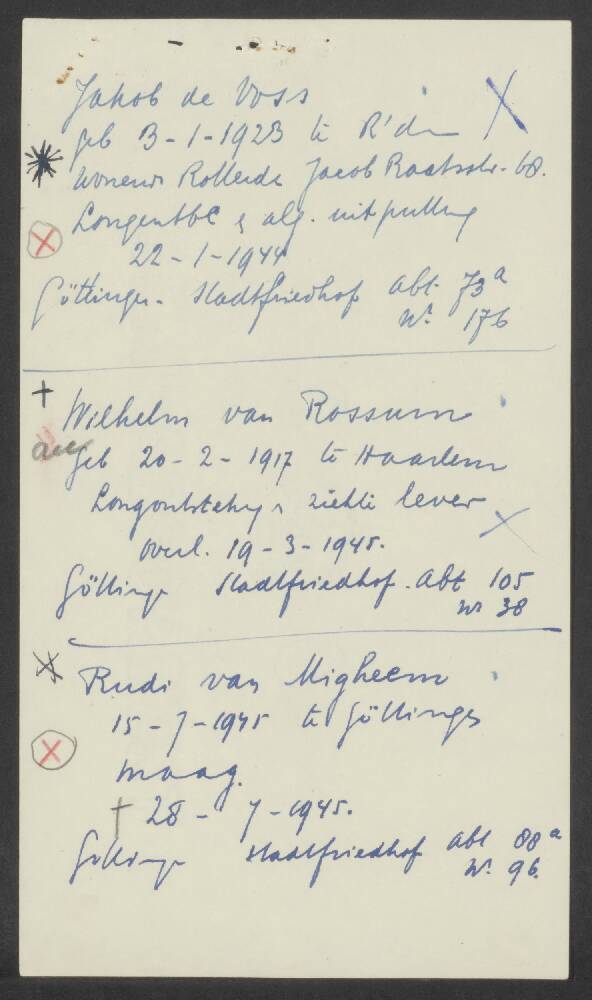 Jakob de Voss
geb 3-1-1923 te R'd
Jacob Raatsstr. 68.
Longentbc & alg. uitputting
22-1-1944
Göttingen. Stadtfriedhof Abt. 73a
Nr. 176
Wilhelm van Rossum
geb 20-2-1917 te Haarlem
Longontsteking ziekte lever
overl. 19-3-1945.
Göttingen Stadtfriedhof. Abt 105
Nr 38
Rudi van Migheem
15-7-1945 te Göttingen
maag.
† 28-7-1945.
Göttingen Stadtfriedhof Abt 88a
Nr. 96.